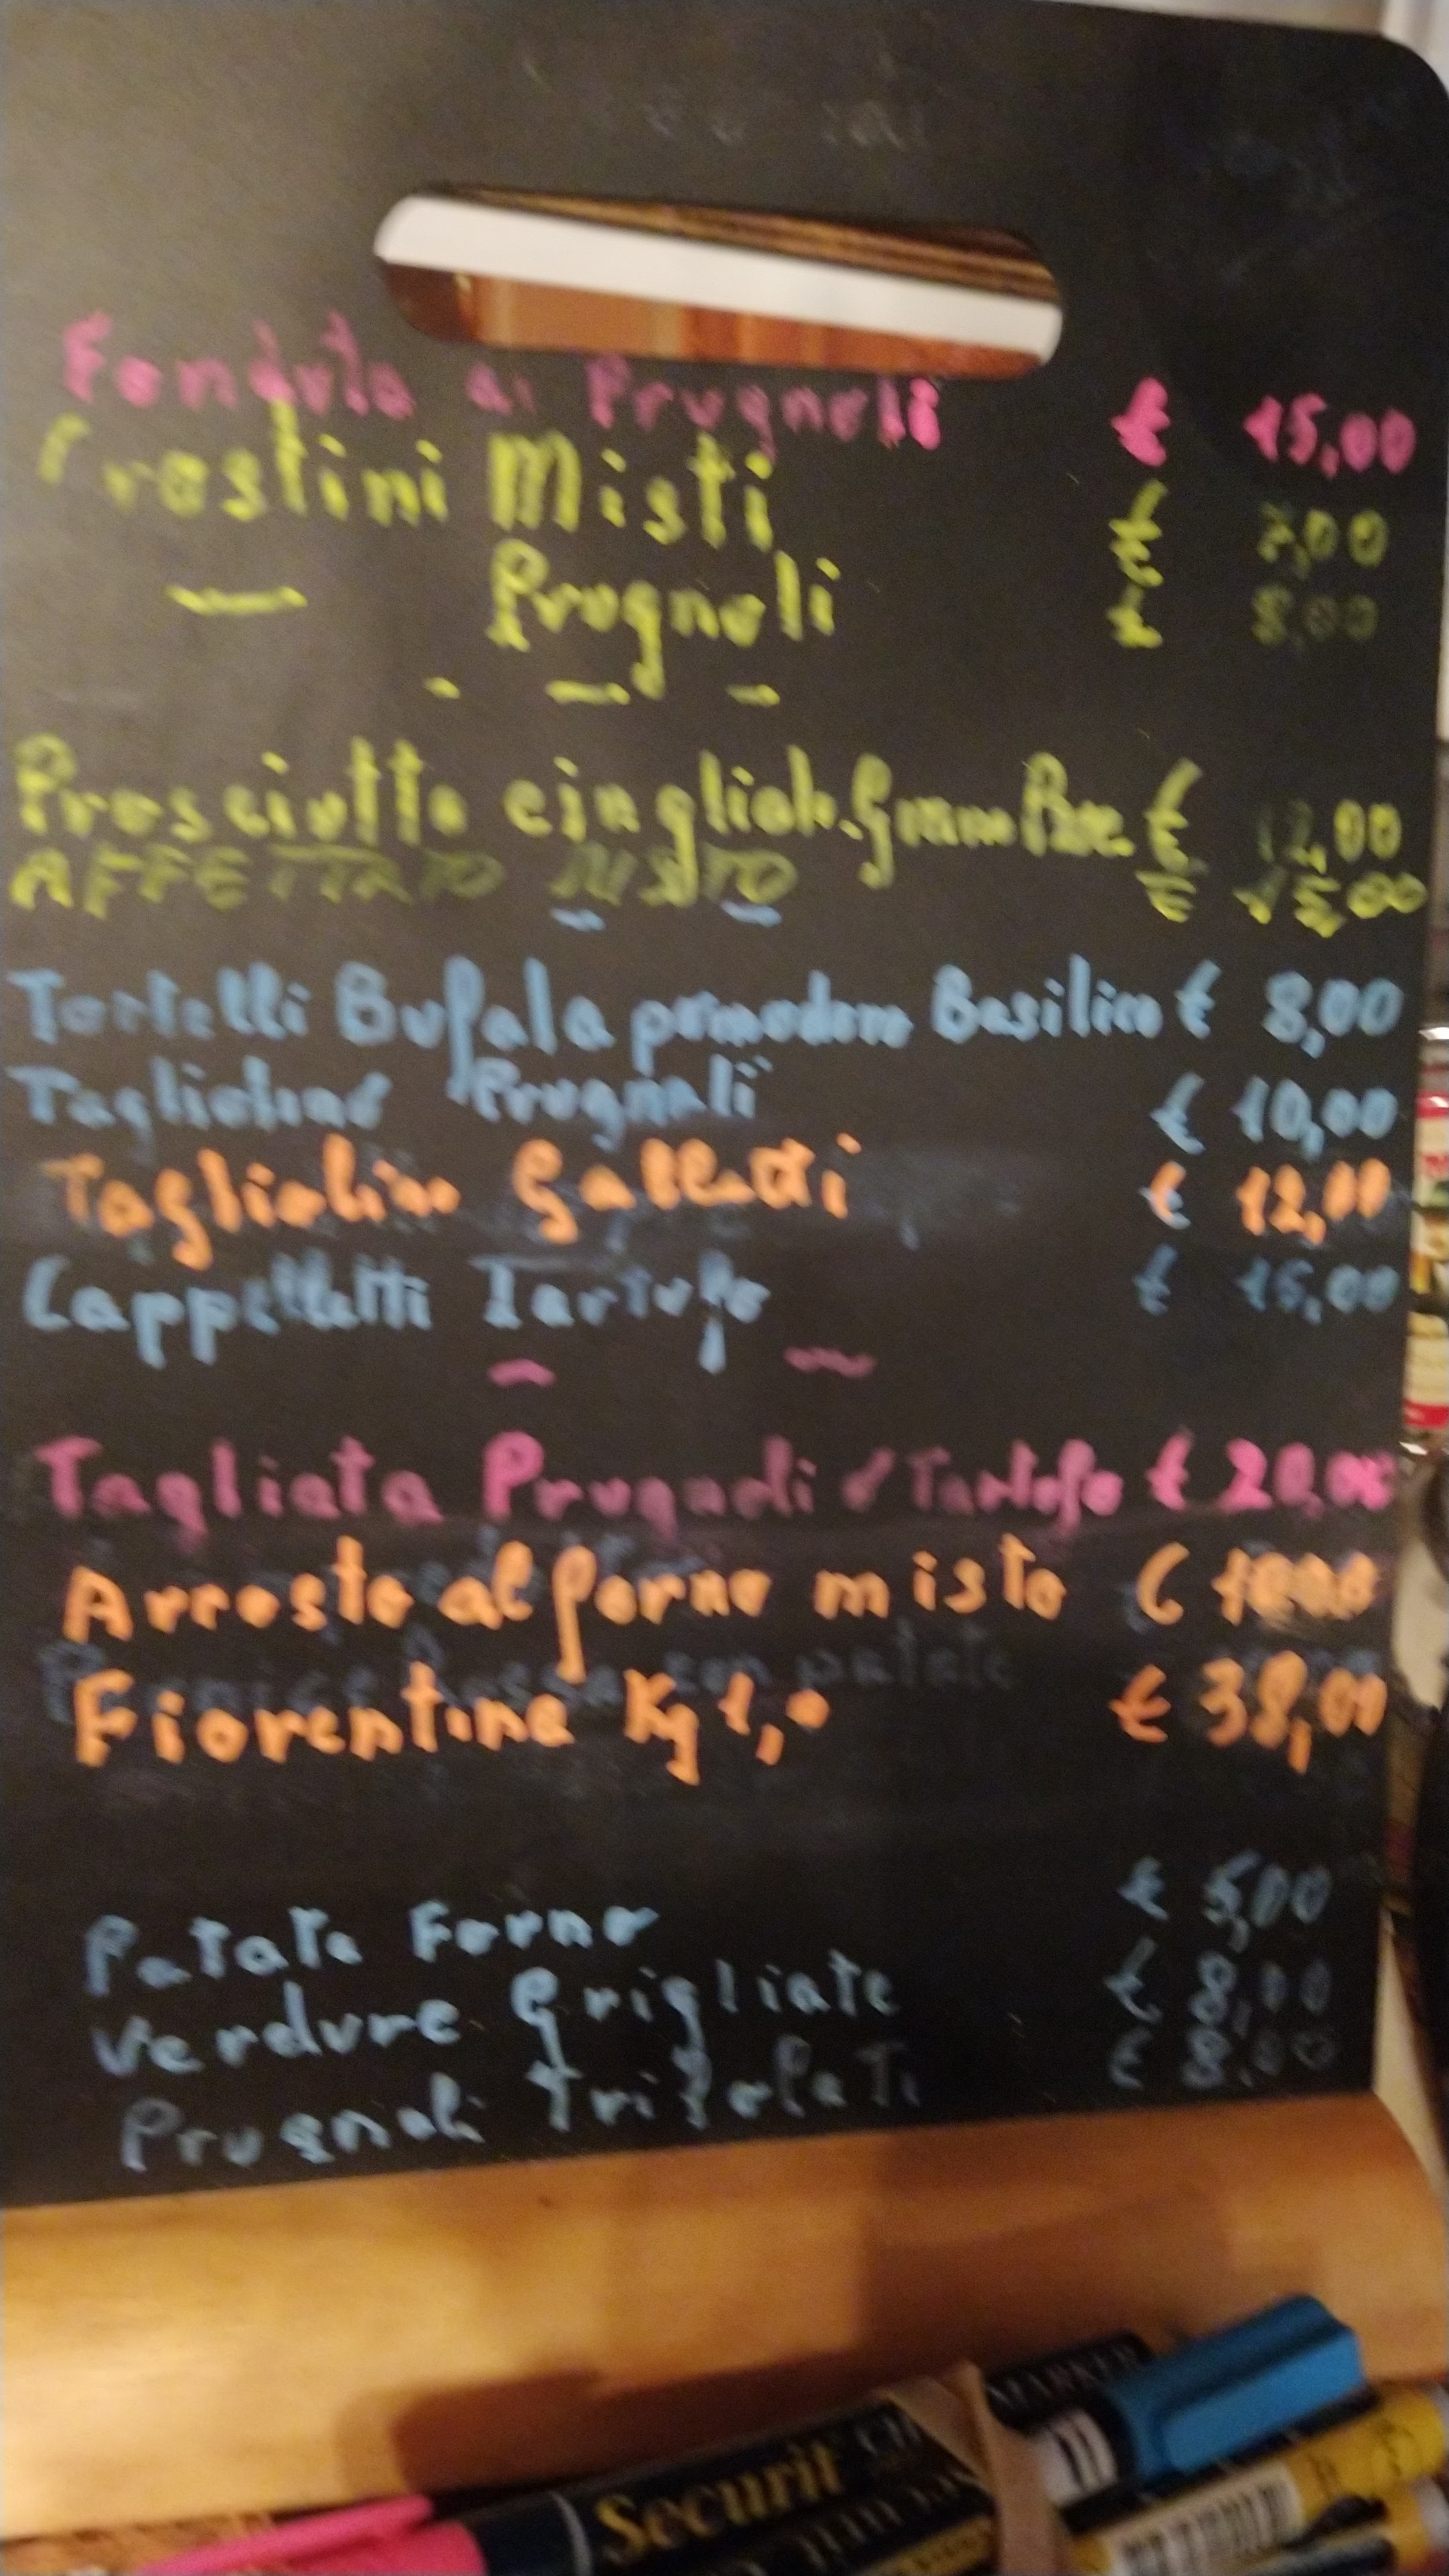 Fonduta ai Prugnoli € 15,00
Crostini Misti € 7,00
— Prugnoli € 8,00
Prosciutto cinghiale. Grana € 12,00
AFFETTATO MISTO € 15,00
Tortelli Bufala pomodoro Basilico € 8,00
Tagliolino Prugnoli € 10,00
Tagliolino Galletti € 12,00
Cappelletti Tartufo €
Tagliata Prugnoli / Tartufo € 20,00
Arrosto al forno misto €
Fiorentina Kg 1,0 € 38,00
Patate Forno € 5,00
Verdure Grigliate € 8,00
Prugnoli Trifolati € 8,00
MARKER
Securit